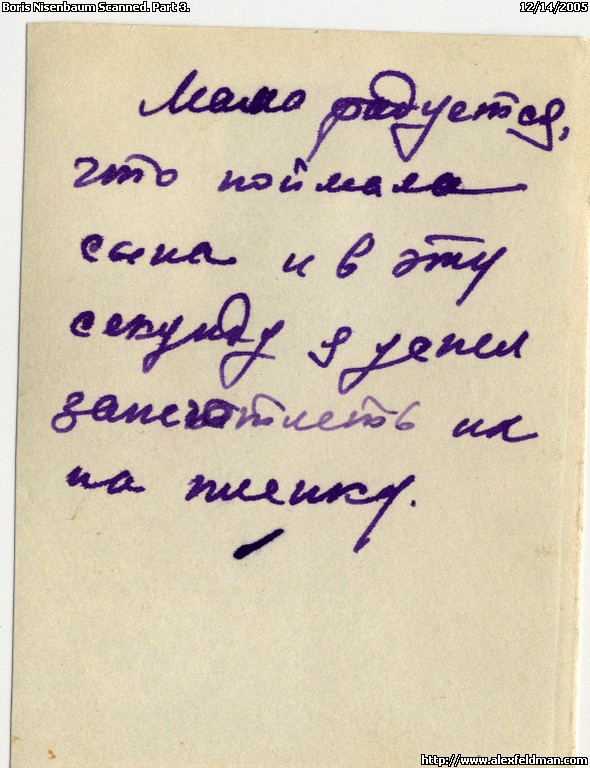 Boris Nisenbaum Scanned. Part 3.
12/14/2005
Мама радуется,
что поймала
сына и в эту
секунду я успел
запечатлеть их
на пленку.
http://www.alexfeldman.com